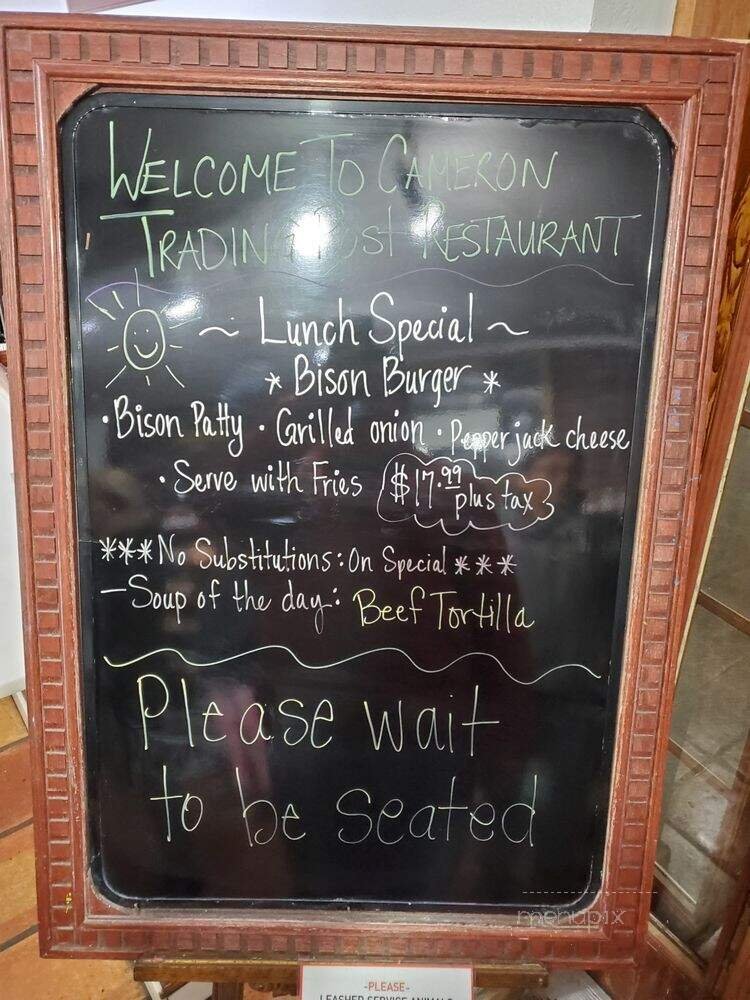 WELCOME TO CAMERON
TRADING Post RESTAURANT
~ Lunch Special ~
* Bison Burger *
• Bison Patty • Grilled onion • Pepper jack cheese
• Serve with Fries $17.99 plus tax
***No Substitutions: On Special ***
— Soup of the day: Beef Tortilla
Please wait
to be seated
menupix
-PLEASE-
LEASHED SERVICE ANIMALS